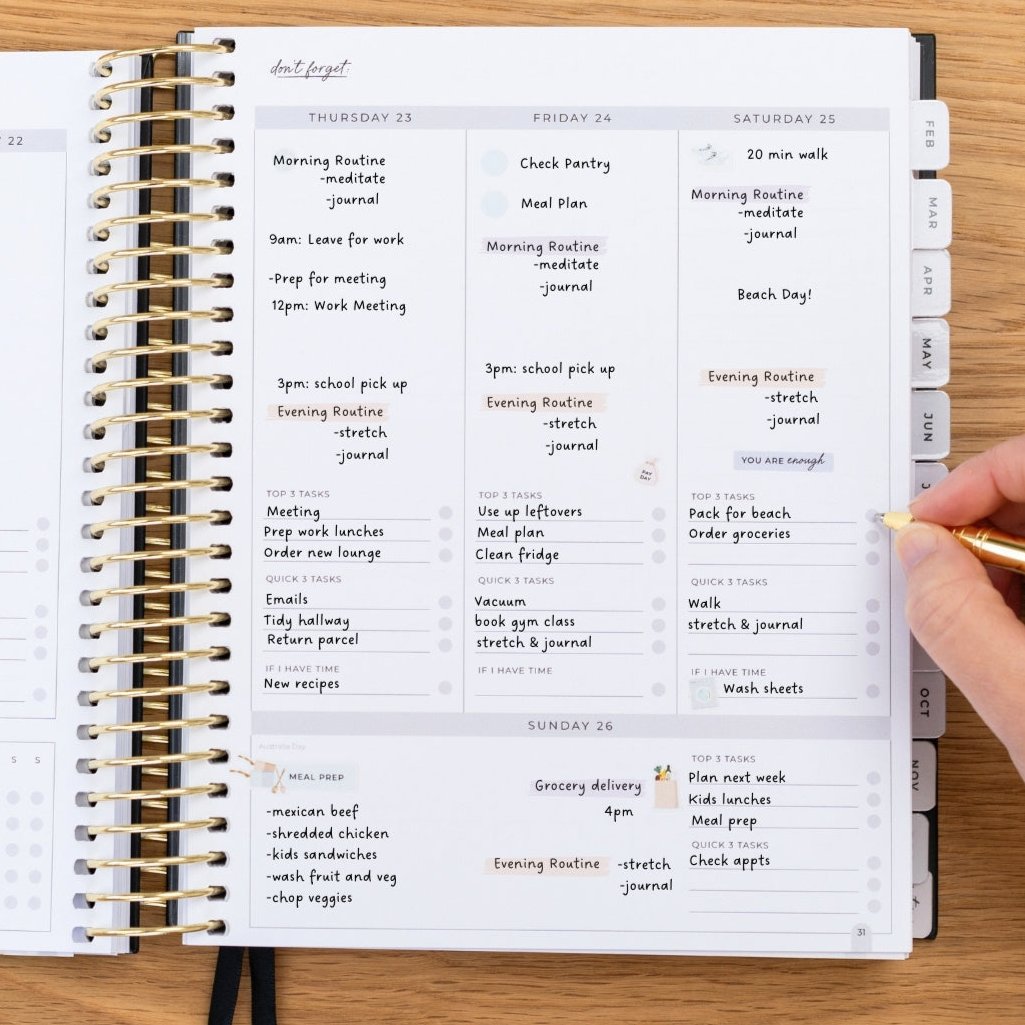 22
S S
don't forget:
THURSDAY 23
Morning Routine
-meditate
-journal
9am: Leave for work
-Prep for meeting
12pm: Work Meeting
3pm: school pick up
Evening Routine
-stretch
-journal
TOP 3 TASKS
Meeting
Prep work lunches
Order new lounge
QUICK 3 TASKS
Emails
Tidy hallway
Return parcel
IF I HAVE TIME
New recipes
FRIDAY 24
Check Pantry
Meal Plan
Morning Routine
-meditate
-journal
3pm: school pick up
Evening Routine
-stretch
-journal
PAY
DAY
TOP 3 TASKS
Use up leftovers
Meal plan
Clean fridge
QUICK 3 TASKS
Vacuum
book gym class
stretch & journal
IF I HAVE TIME
SATURDAY 25
20 min walk
Morning Routine
-meditate
-journal
Beach Day!
Evening Routine
-stretch
-journal
YOU ARE enough
TOP 3 TASKS
Pack for beach
Order groceries
QUICK 3 TASKS
Walk
stretch & journal
IF I HAVE TIME
Wash sheets
SUNDAY 26
Australia Day
MEAL PREP
-mexican beef
-shredded chicken
-kids sandwiches
-wash fruit and veg
-chop veggies
Grocery delivery
4pm
Evening Routine -stretch
-journal
TOP 3 TASKS
Plan next week
Kids lunches
Meal prep
QUICK 3 TASKS
Check appts
31
FEB
MAR
APR
MAY
JUN
OCT
NOV